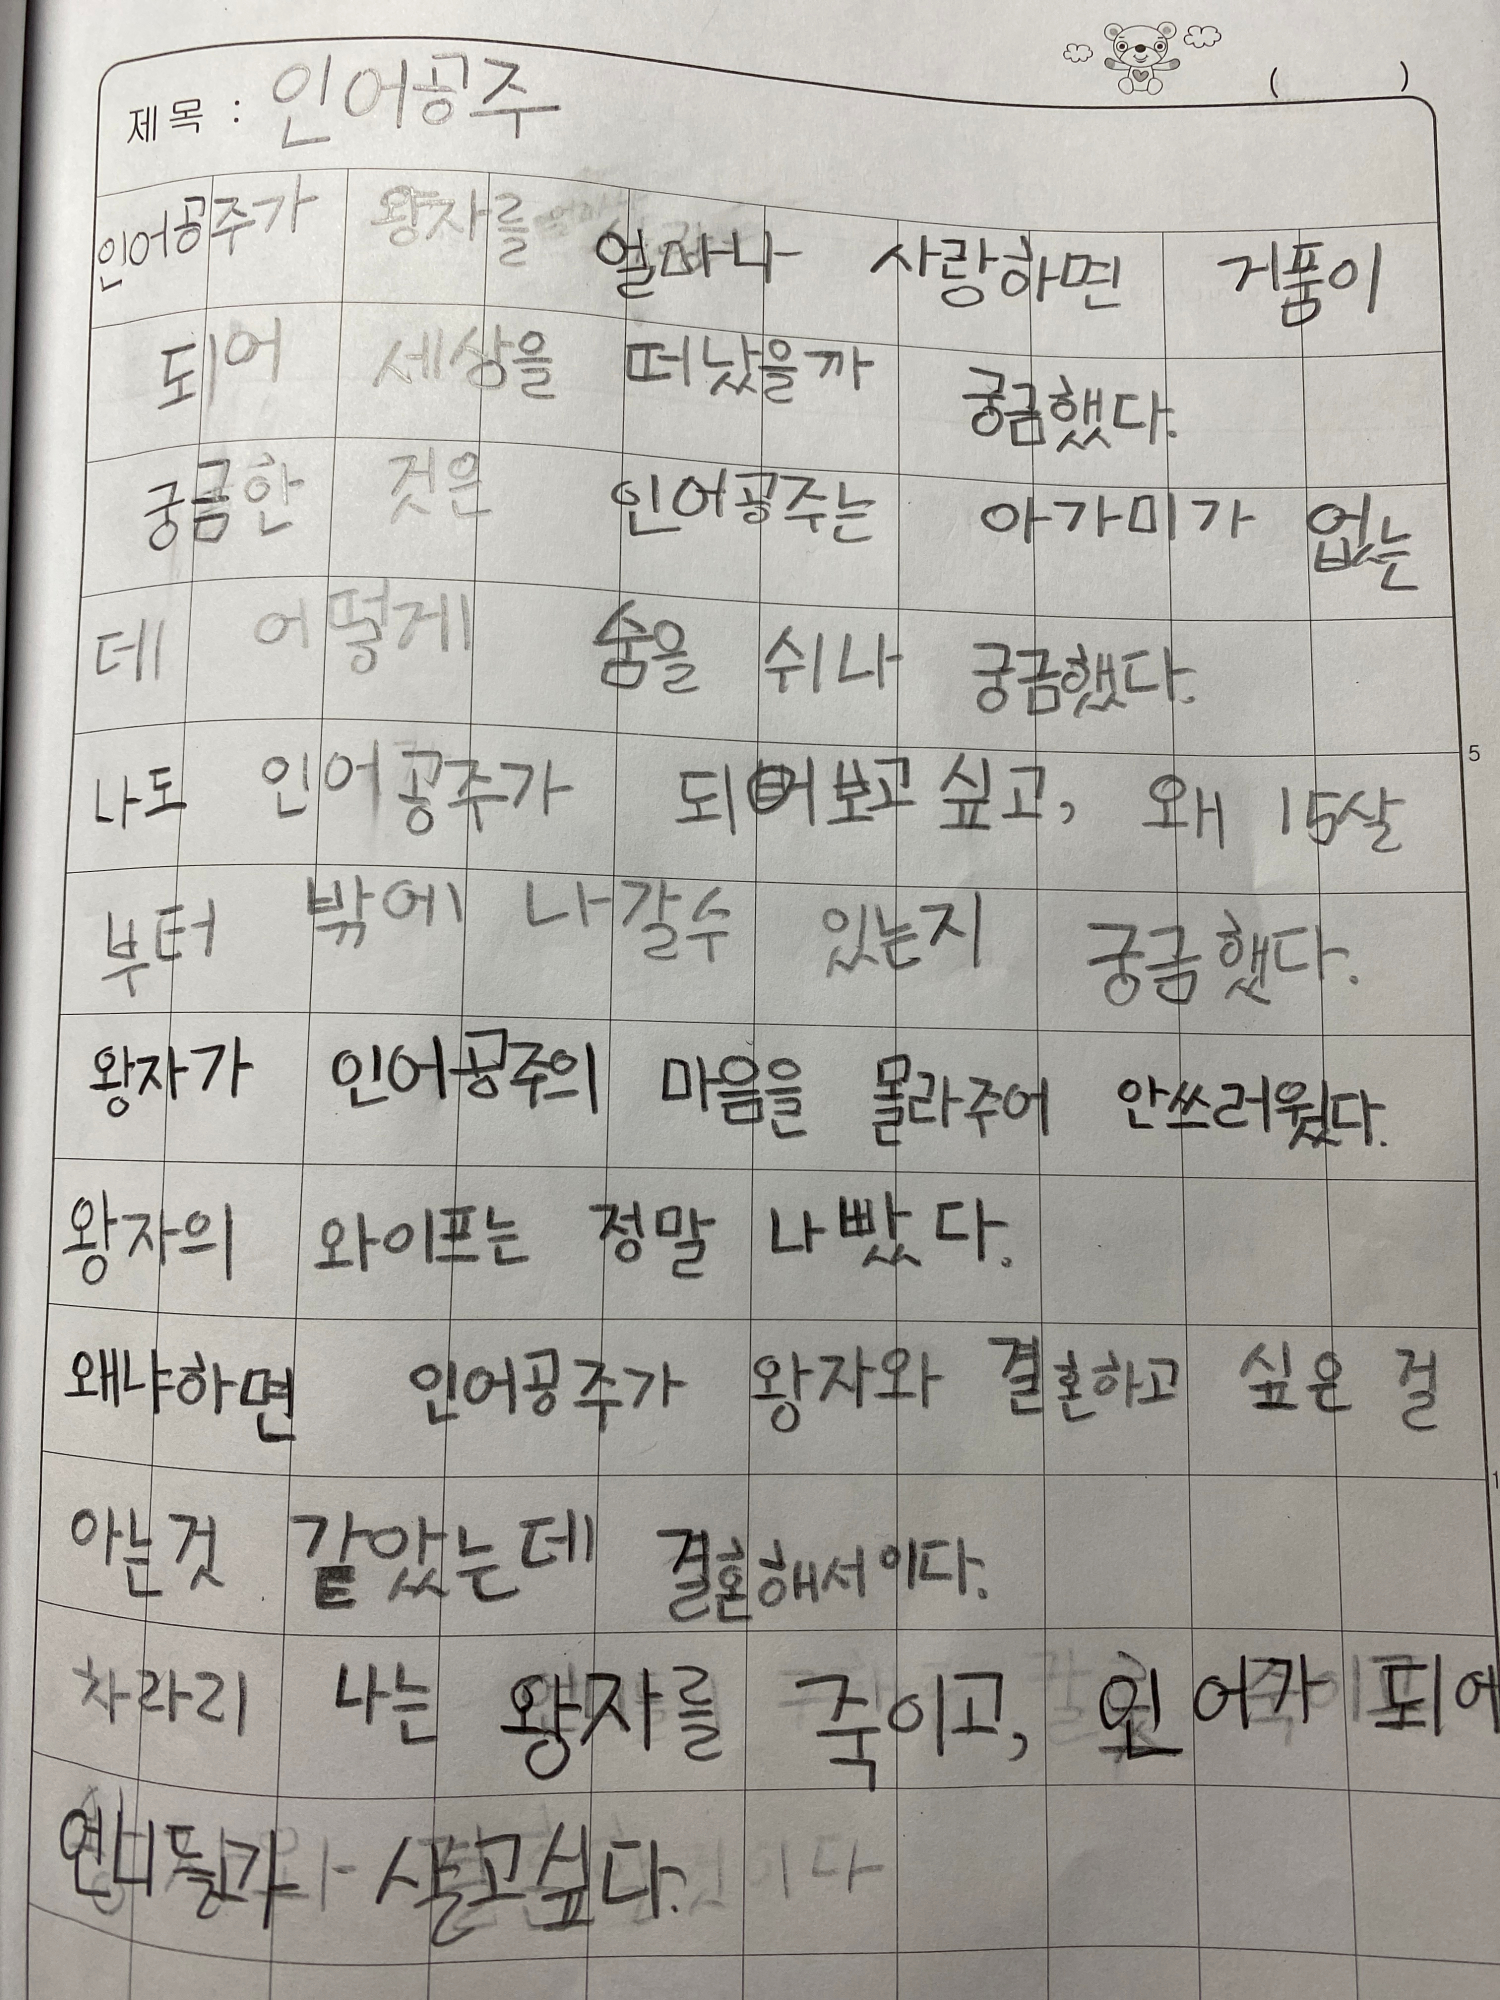 제목 : 인어공주
인어공주가 왕자를 얼마나 사랑하면 거품이
되어 세상을 떠났을까 궁금했다.
궁금한 것은 인어공주는 아가미가 없는
데 어떻게 숨을 쉬나 궁금했다.
나도 인어공주가 되어보고 싶고, 왜 15살
부터 밖에 나갈수 있는지 궁금했다.
왕자가 인어공주의 마음을 몰라주어 안쓰러웠다.
왕자의 와이프는 정말 나빴다.
왜냐하면 인어공주가 왕자와 결혼하고 싶은 걸
아는것 같았는데 결혼해서이다.
차라리 나는 왕자를 죽이고, 인어가 되어
언니들과 살고싶다.
5